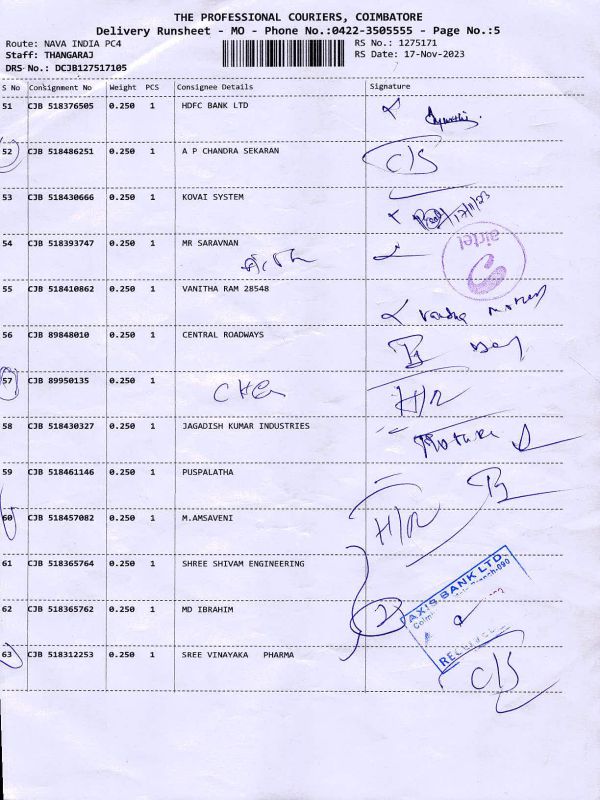 THE PROFESSIONAL COURIERS, COIMBATORE
Delivery Runsheet - MO - Phone No.:0422-3505555 - Page No.:5
Route: NAVA INDIA PC4 RS No.: 1275171
Staff: THANGARAJ RS Date: 17-Nov-2023
DRS-No.: DCJB127517105
S No Consignment No Weight PCS Consignee Details Signature
51 CJB 518376505 0.250 1 HDFC BANK LTD
52 CJB 518486251 0.250 1 A P CHANDRA SEKARAN C/S
53 CJB 518430666 0.250 1 KOVAI SYSTEM 17/11/23
54 CJB 518393747 0.250 1 MR SARAVNAN
airtel
55 CJB 518410862 0.250 1 VANITHA RAM 28548
56 CJB 89848010 0.250 1 CENTRAL ROADWAYS
57 CJB 89950135 0.250 1 H/R
58 CJB 518430327 0.250 1 JAGADISH KUMAR INDUSTRIES
59 CJB 518461146 0.250 1 PUSPALATHA
60 CJB 518457082 0.250 1 M.AMSAVENI H/R
61 CJB 518365764 0.250 1 SHREE SHIVAM ENGINEERING
AXIS BANK LTD.
62 CJB 518365762 0.250 1 MD IBRAHIM
63 CJB 518312253 0.250 1 SREE VINAYAKA PHARMA C/S